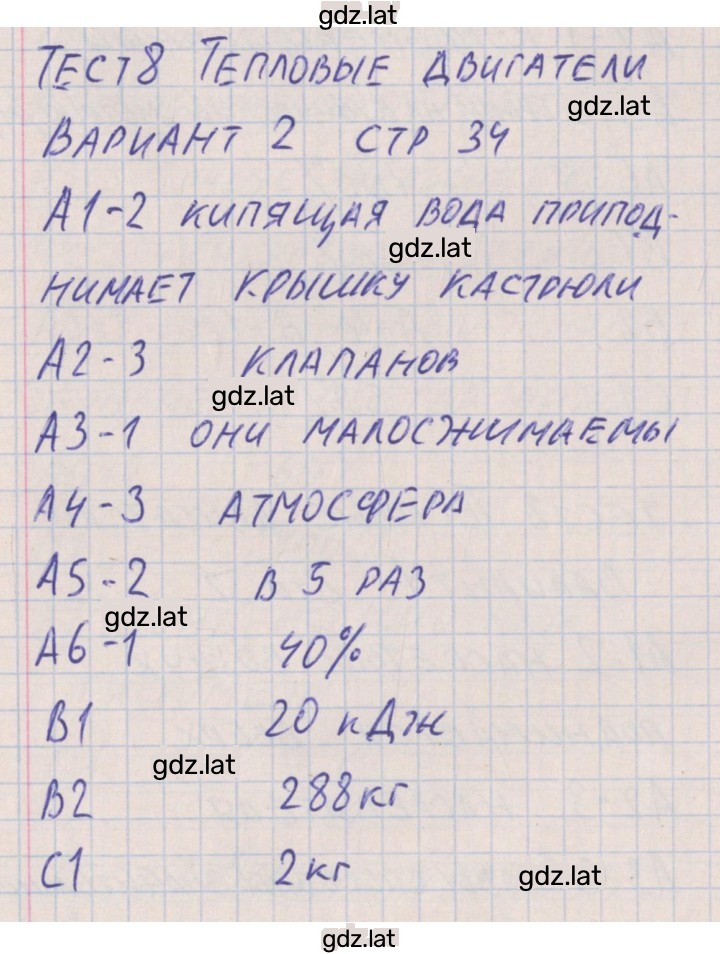 gdz.lat
ТЕСТ 8 ТЕПЛОВЫЕ ДВИГАТЕЛИ
gdz.lat
ВАРИАНТ 2 СТР 34
А1-2 КИПЯЩАЯ ВОДА ПРИПОД-
gdz.lat
НИМАЕТ КРЫШКУ КАСТРЮЛИ
А2-3 КЛАПАНОВ
gdz.lat
А3-1 ОНИ МАЛОСЖИМАЕМЫ
А4-3 АТМОСФЕРА
А5-2 В 5 РАЗ
gdz.lat
А6-1 40%
В1 20 кДж
gdz.lat
В2 288кг
С1 2кг
gdz.lat
gdz.lat